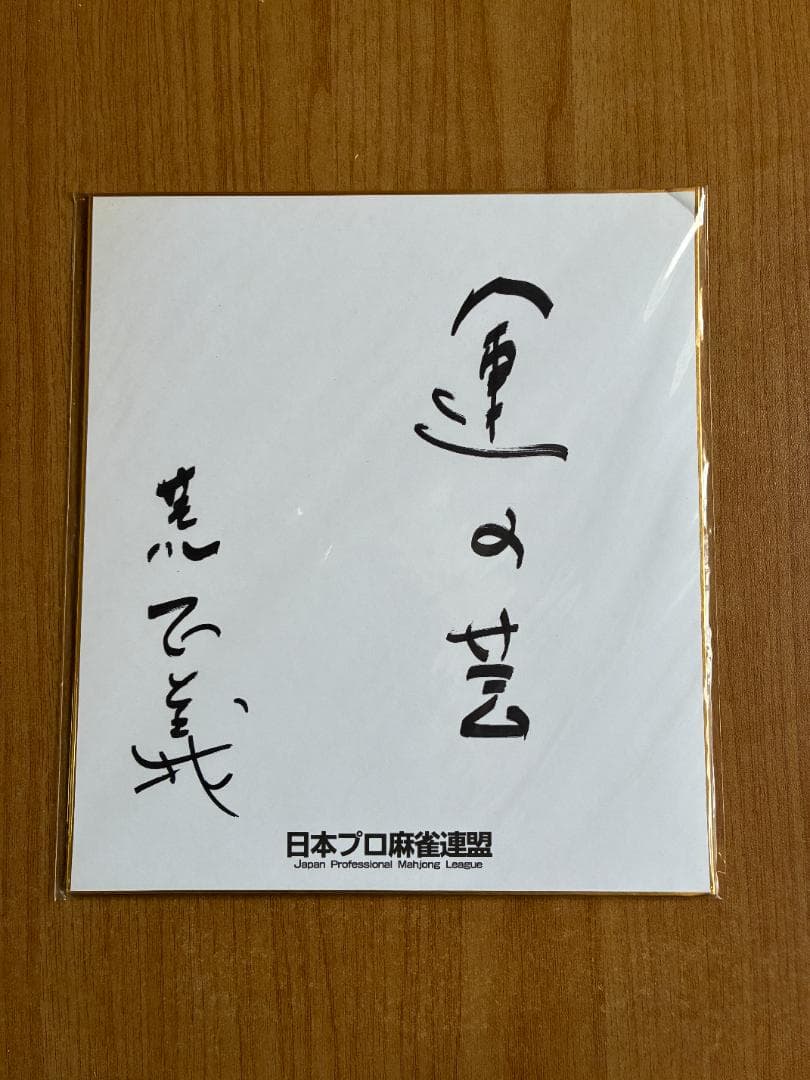 運の芸
荒正義
日本プロ麻雀連盟
Japan Professional Mahjong League